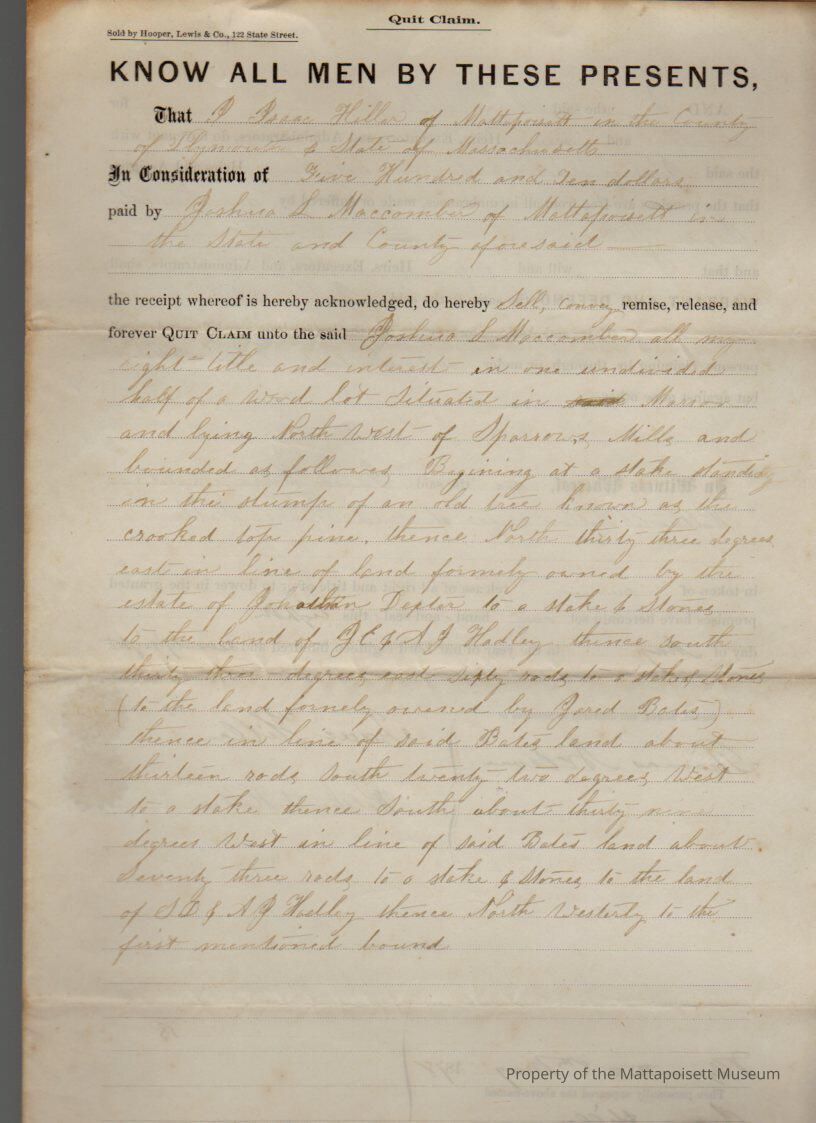 Quit Claim.
Sold by Hooper, Lewis & Co., 122 State Street.
KNOW ALL MEN BY THESE PRESENTS,
That I Isaac Hiller of Mattapoisett in the County
of Plymouth & State of Massachusetts
In Consideration of Five Hundred and Ten dollars
paid by Joshua L Maccomber of Mattapoisett in
the State and County aforesaid
the receipt whereof is hereby acknowledged, do hereby Sell, Convey remise, release, and
forever QUIT CLAIM unto the said Joshua L Maccomber all my
right title and interest in one undivided
half of a wood lot situated in said Marion
and lying North West of Sparrows Mills and
bounded as follows, Begining at a stake standing
in the stump of an old tree known as the
crooked top pine, thence North thirty three degrees
east in line of land formely owned by the
estate of Jonathan Dexter to a stake & Stones
to the land of & A J Hadley thence south
thirty three degrees east sixty rods to a stake & Stones
(to the land formely owned by Jared Bates)
thence in line of said Bates land about
thirteen rods South twenty two degrees West
to a stake thence South about thirty nine
degrees West in line of said Bates land about
Seventy three rods, to a stake & Stones, to the land
of & A J Hadley thence North Westerly to the
first mentioned bound
Property of the Mattapoisett Museum